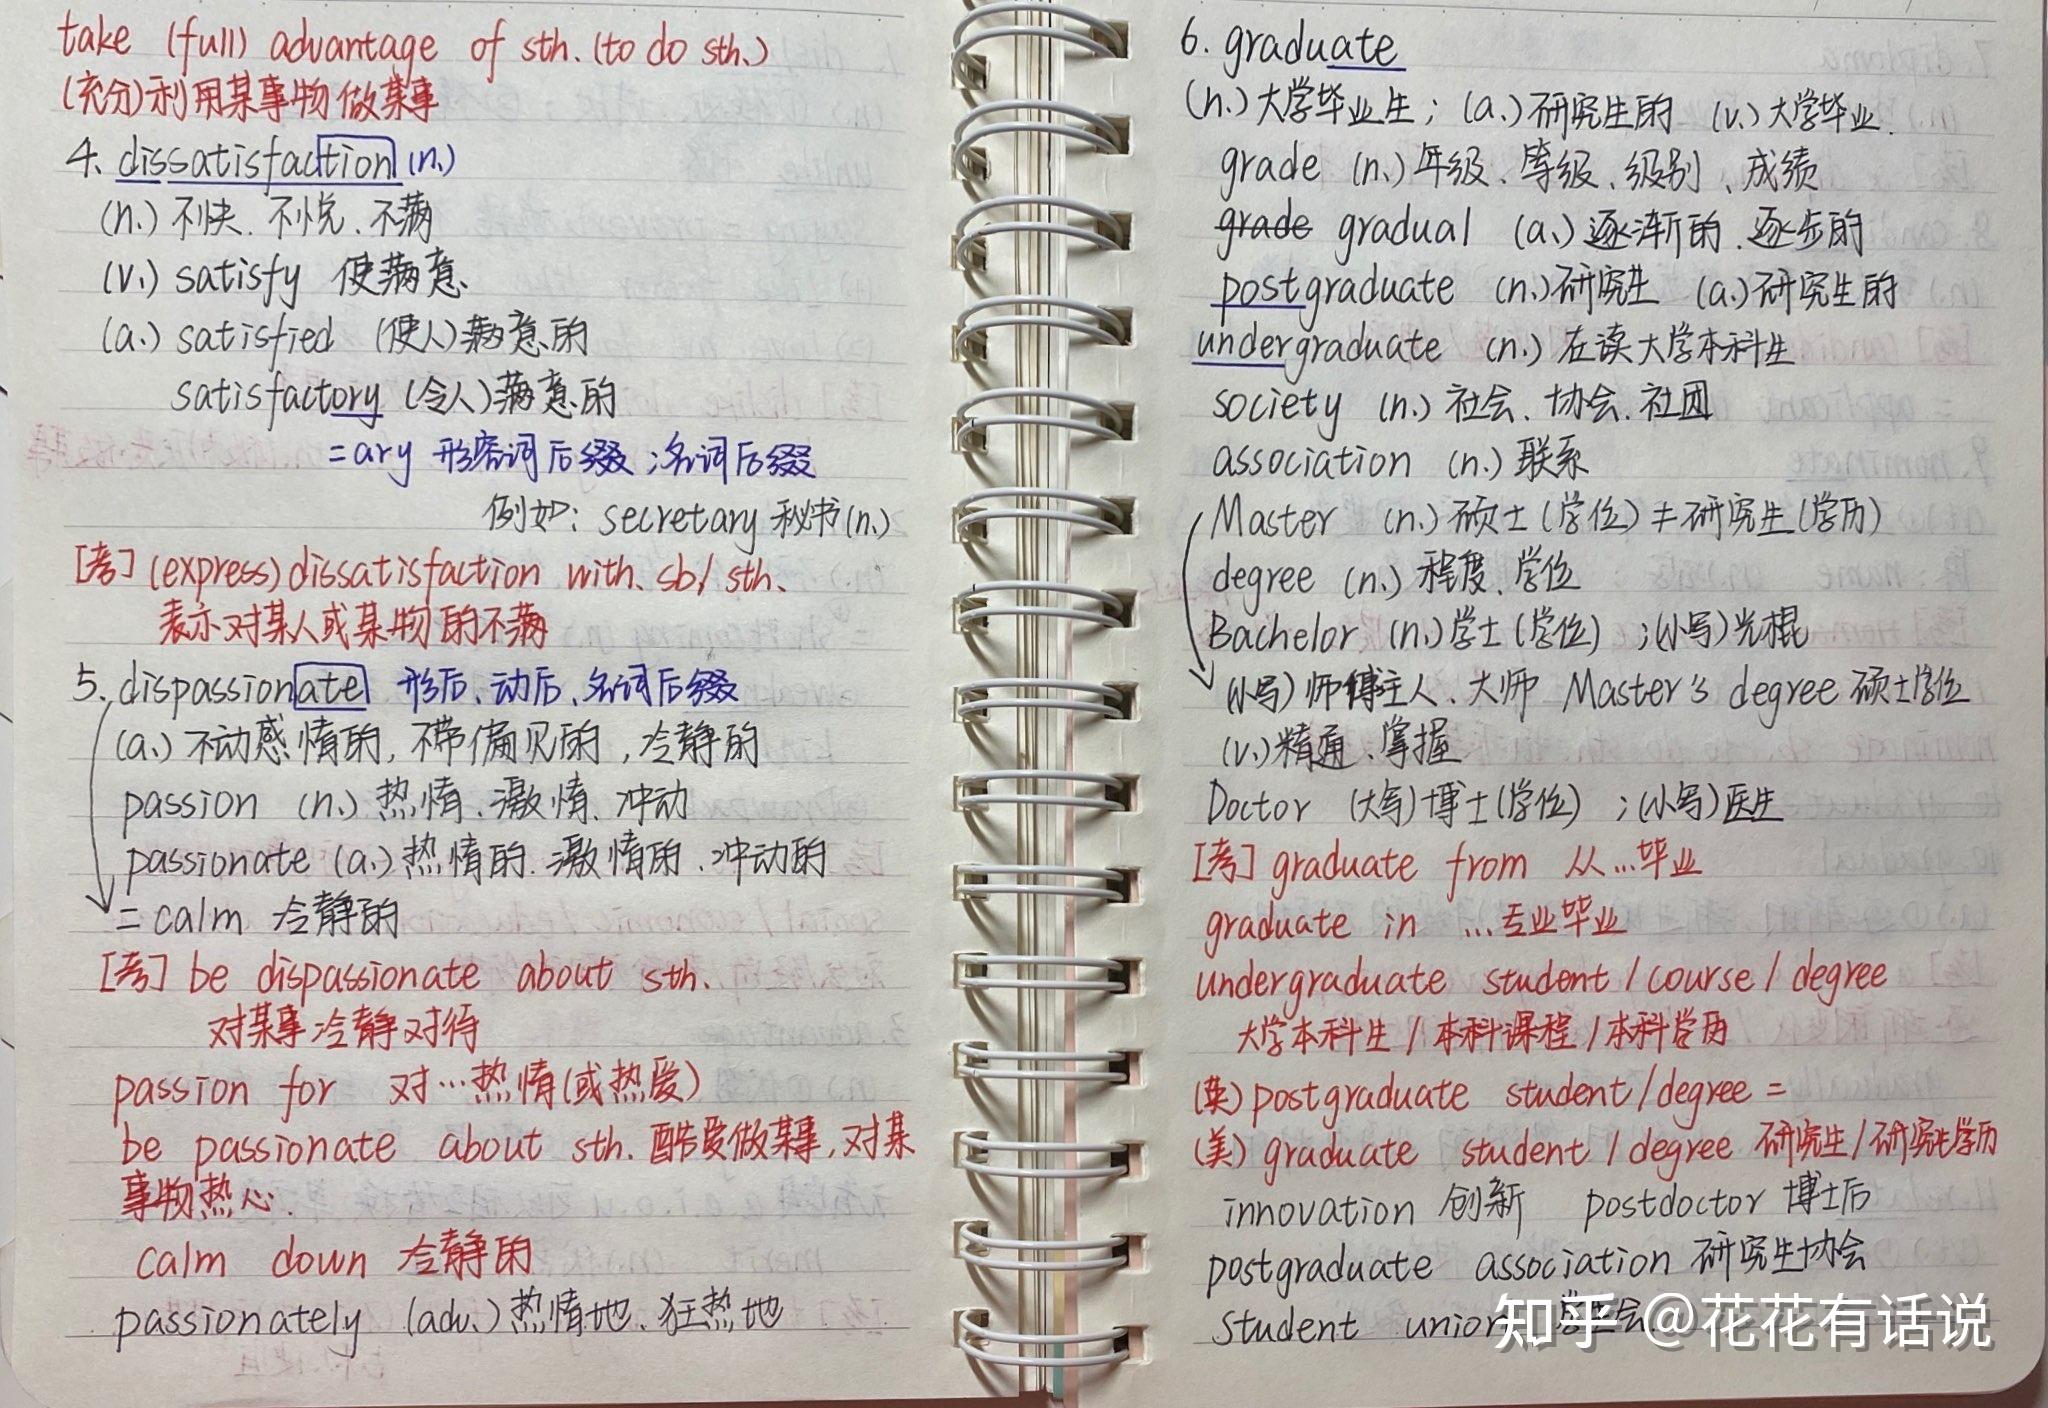 take (full) advantage of sth. (to do sth.)
(充分)利用某事物做某事
4. dissatisfaction (n.)
(n.) 不快、不悦、不满
(v.) satisfy 使满意
(a.) satisfied (使人)满意的
satisfactory (令人)满意的
=ary 形容词后缀;名词后缀
例如: secretary 秘书(n.)
[考] (express) dissatisfaction with sb./sth.
表示对某人或某物的不满
5. dispassionate 形后、动后、名词后缀
(a.) 不动感情的, 不带偏见的, 冷静的
passion (n.) 热情、激情、冲动
passionate (a.) 热情的、激情的、冲动的
= calm 冷静的
[考] be dispassionate about sth.
对某事冷静对待
passion for 对…热情(或热爱)
be passionate about sth. 酷爱做某事, 对某
事物热心.
calm down 冷静的
passionately (adv.) 热情地、狂热地
6. graduate
(n.) 大学毕业生; (a.) 研究生的 (v.) 大学毕业.
grade (n.) 年级、等级、级别、成绩
grade gradual (a.) 逐渐的、逐步的
postgraduate (n.) 研究生 (a.) 研究生的
undergraduate (n.) 在读大学本科生
society (n.) 社会、协会、社团
association (n.) 联系
Master (n.) 硕士(学位) ≠ 研究生(学历)
degree (n.) 程度、学位
Bachelor (n.) 学士(学位) ;(小写)光棍
(小写) 师傅主人、大师 Master's degree 硕士学位
(v.) 精通、掌握
Doctor (大写) 博士(学位) ;(小写)医生
[考] graduate from 从…毕业
graduate in …专业毕业
undergraduate student / course / degree
大学本科生 / 本科课程 / 本科学历
(英) postgraduate student/degree =
(美) graduate student / degree 研究生/研究生学历
innovation 创新 postdoctor 博士后
postgraduate association 研究生协会
student union 学生会
知乎 @花花有话说